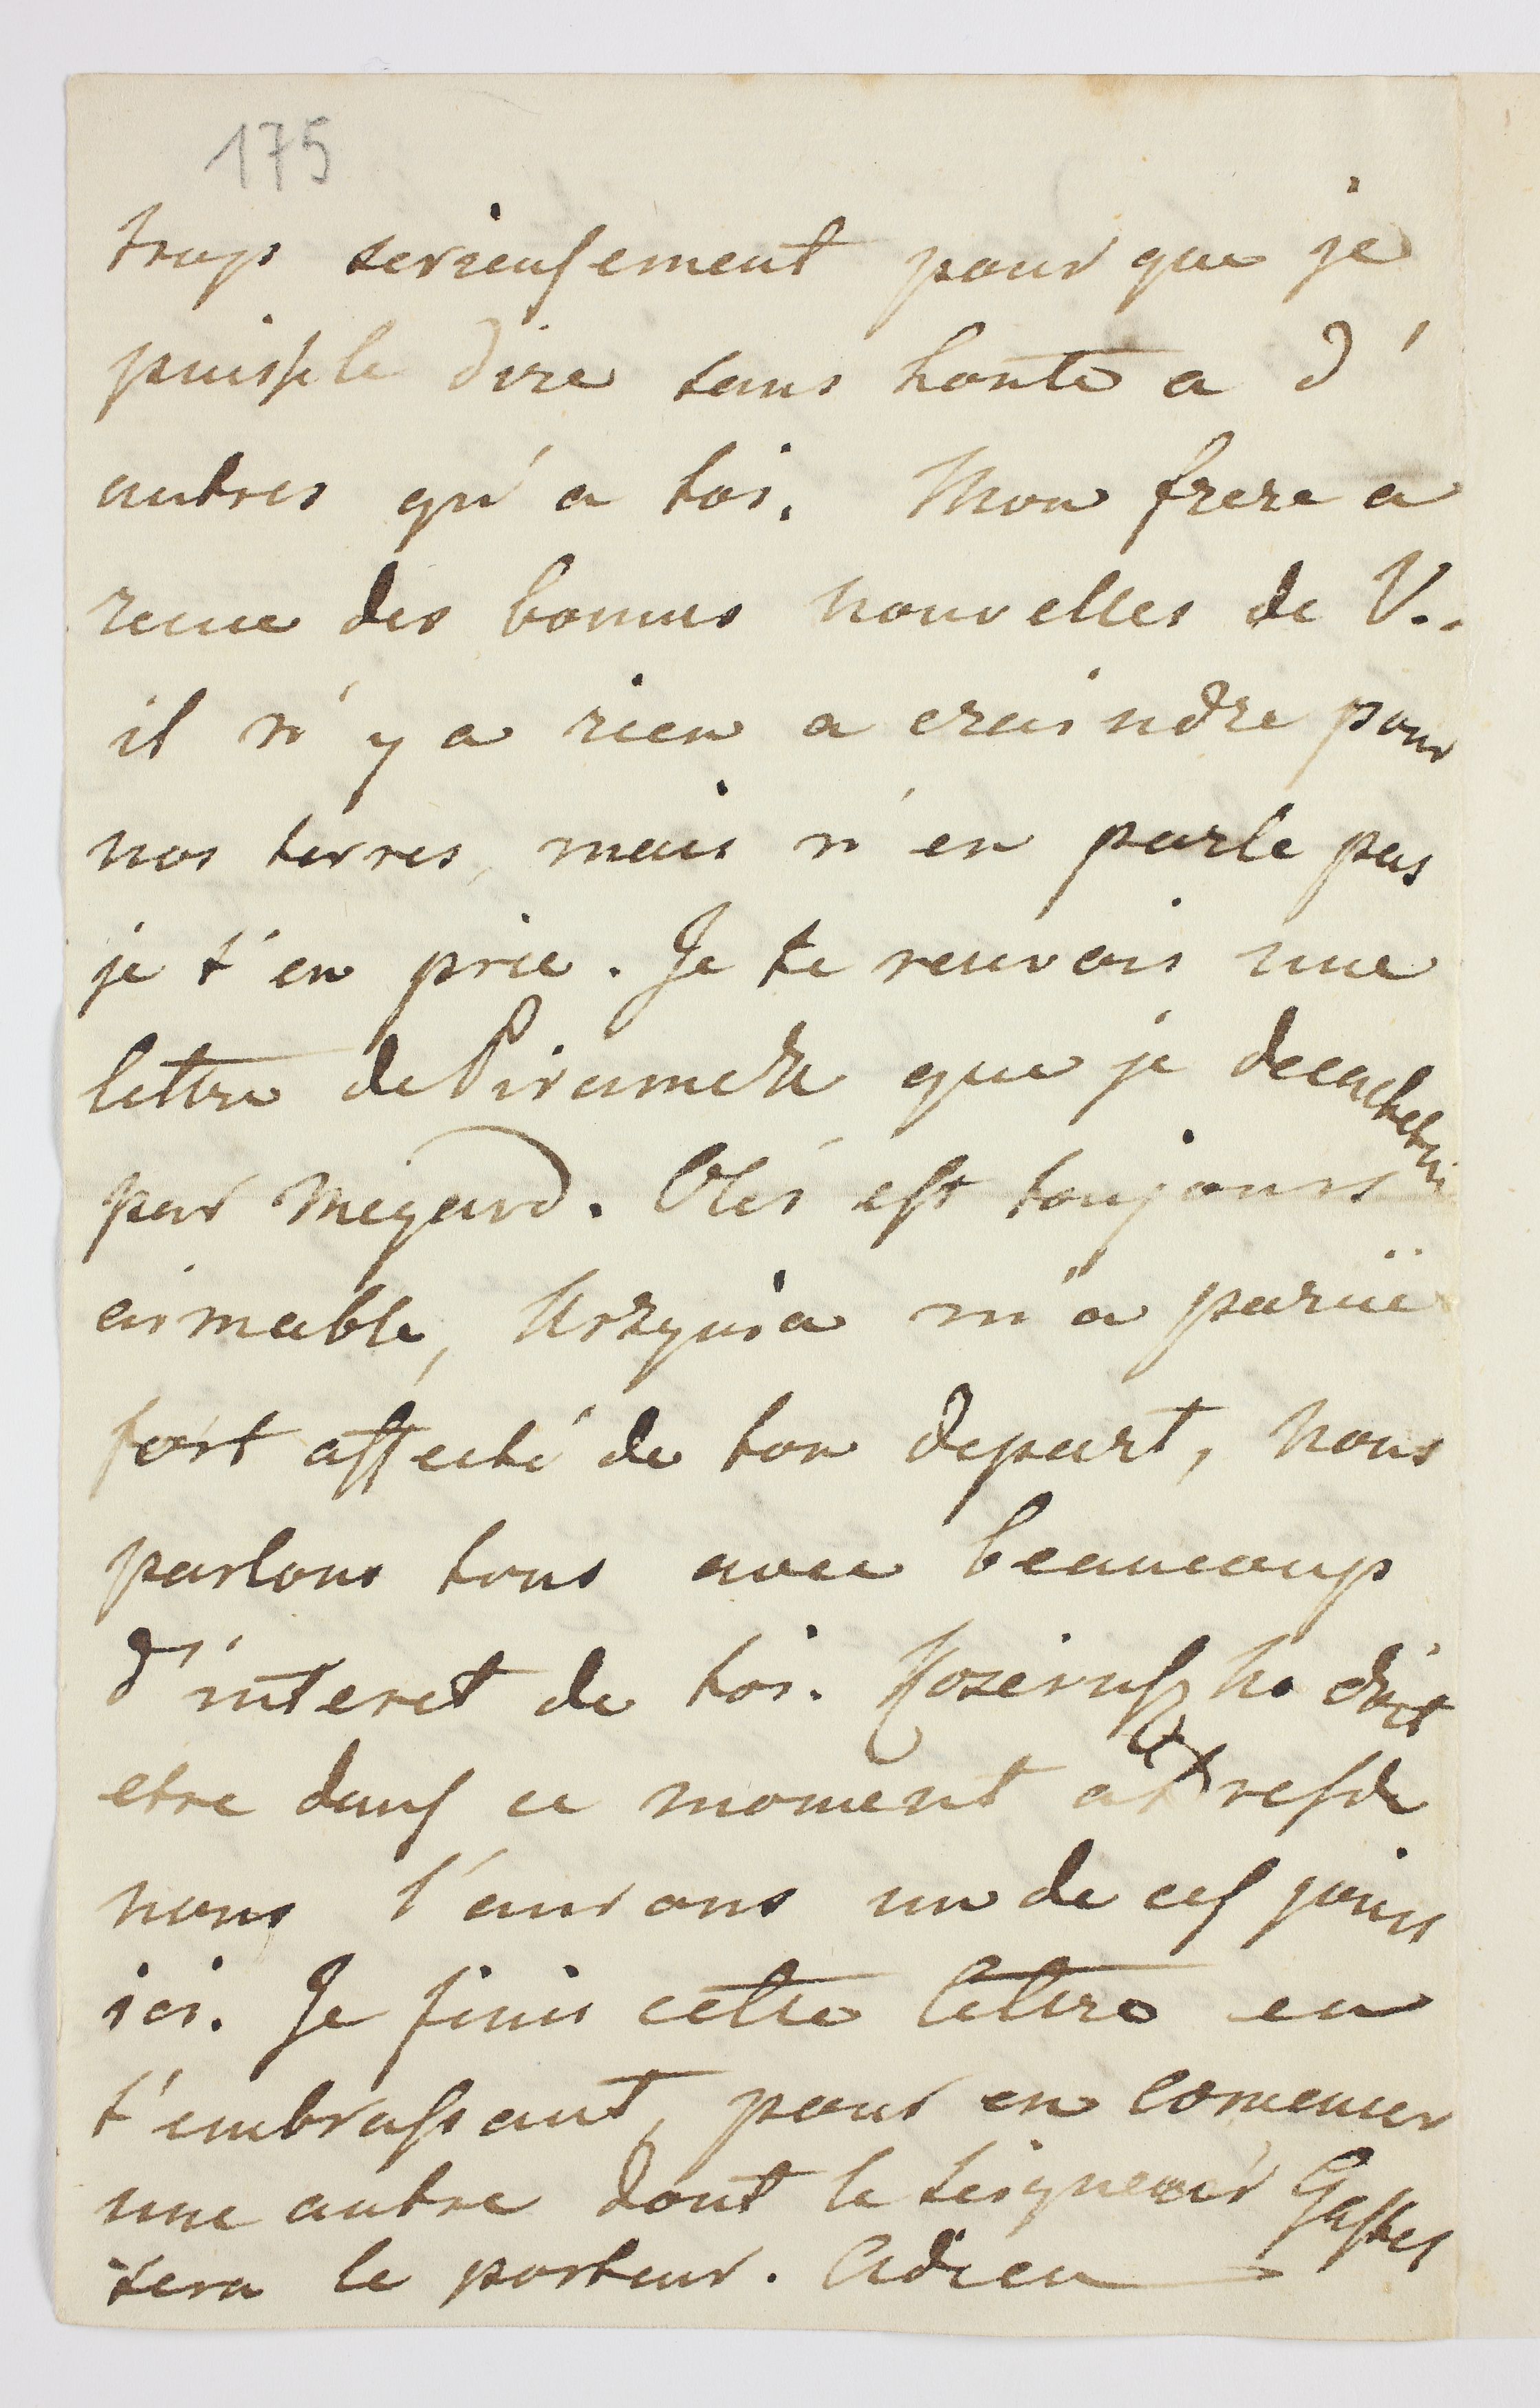 175
trop serieusement pour que je
puisse le dire sans honte a d'
autres qu'a toi. Mon frere a
recue des bonnes nouvelles de V..
il n'y a rien a craindre pour
nos terres, mais n'en parle pas
je t'en prie. Je te renvois une
lettre de que je decachetai
par megard. est toujours
aimable, m'a paruë
fort affecté de ton depart, nous
parlons tous avec beaucoup
d'interet de toi. doit
etre dans ce moment a Dresde
nous l'aurons un de ces jours
ici. Je finis cette lettre en
t'embrassant, pour en comencer
une autre dont le seigneur
sera le porteur. Adieu